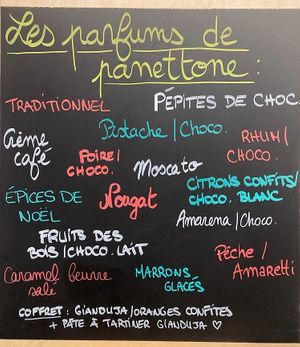 Les parfums de
panettone :
TRADITIONNEL
PÉPITES DE CHOC
Pistache / Choco.
Crème
café
POIRE /
CHOCO.
Moscato
RHUM /
CHOCO.
ÉPICES DE
NOËL
Nougat
CITRONS CONFITS/
CHOCO. BLANC
Amarena / Choco.
FRUITS DES
BOIS / CHOCO. LAIT
Pêche /
Amaretti
Caramel beurre
salé
MARRONS
GLACÉS
COFFRET : GIANDUJA/ORANGES CONFITES
+ PÂTE À TARTINER GIANDUJA ♡